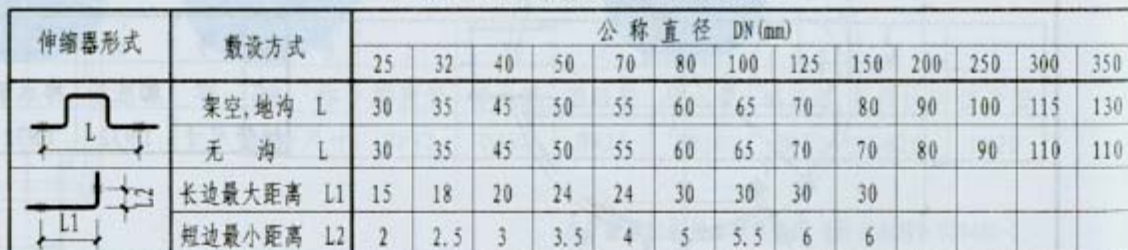 伸缩器形式 敷设方式 公称直径 DN(mm)
25 32 40 50 70 80 100 125 150 200 250 300 350
架空,地沟 L 30 35 45 50 55 60 65 70 80 90 100 115 130
L
无沟 L 30 35 45 50 55 60 65 70 70 80 90 110 110
长边最大距离 L1 15 18 20 24 24 30 30 30 30
L2
L1
短边最小距离 L2 2 2.5 3 3.5 4 5 5.5 6 6